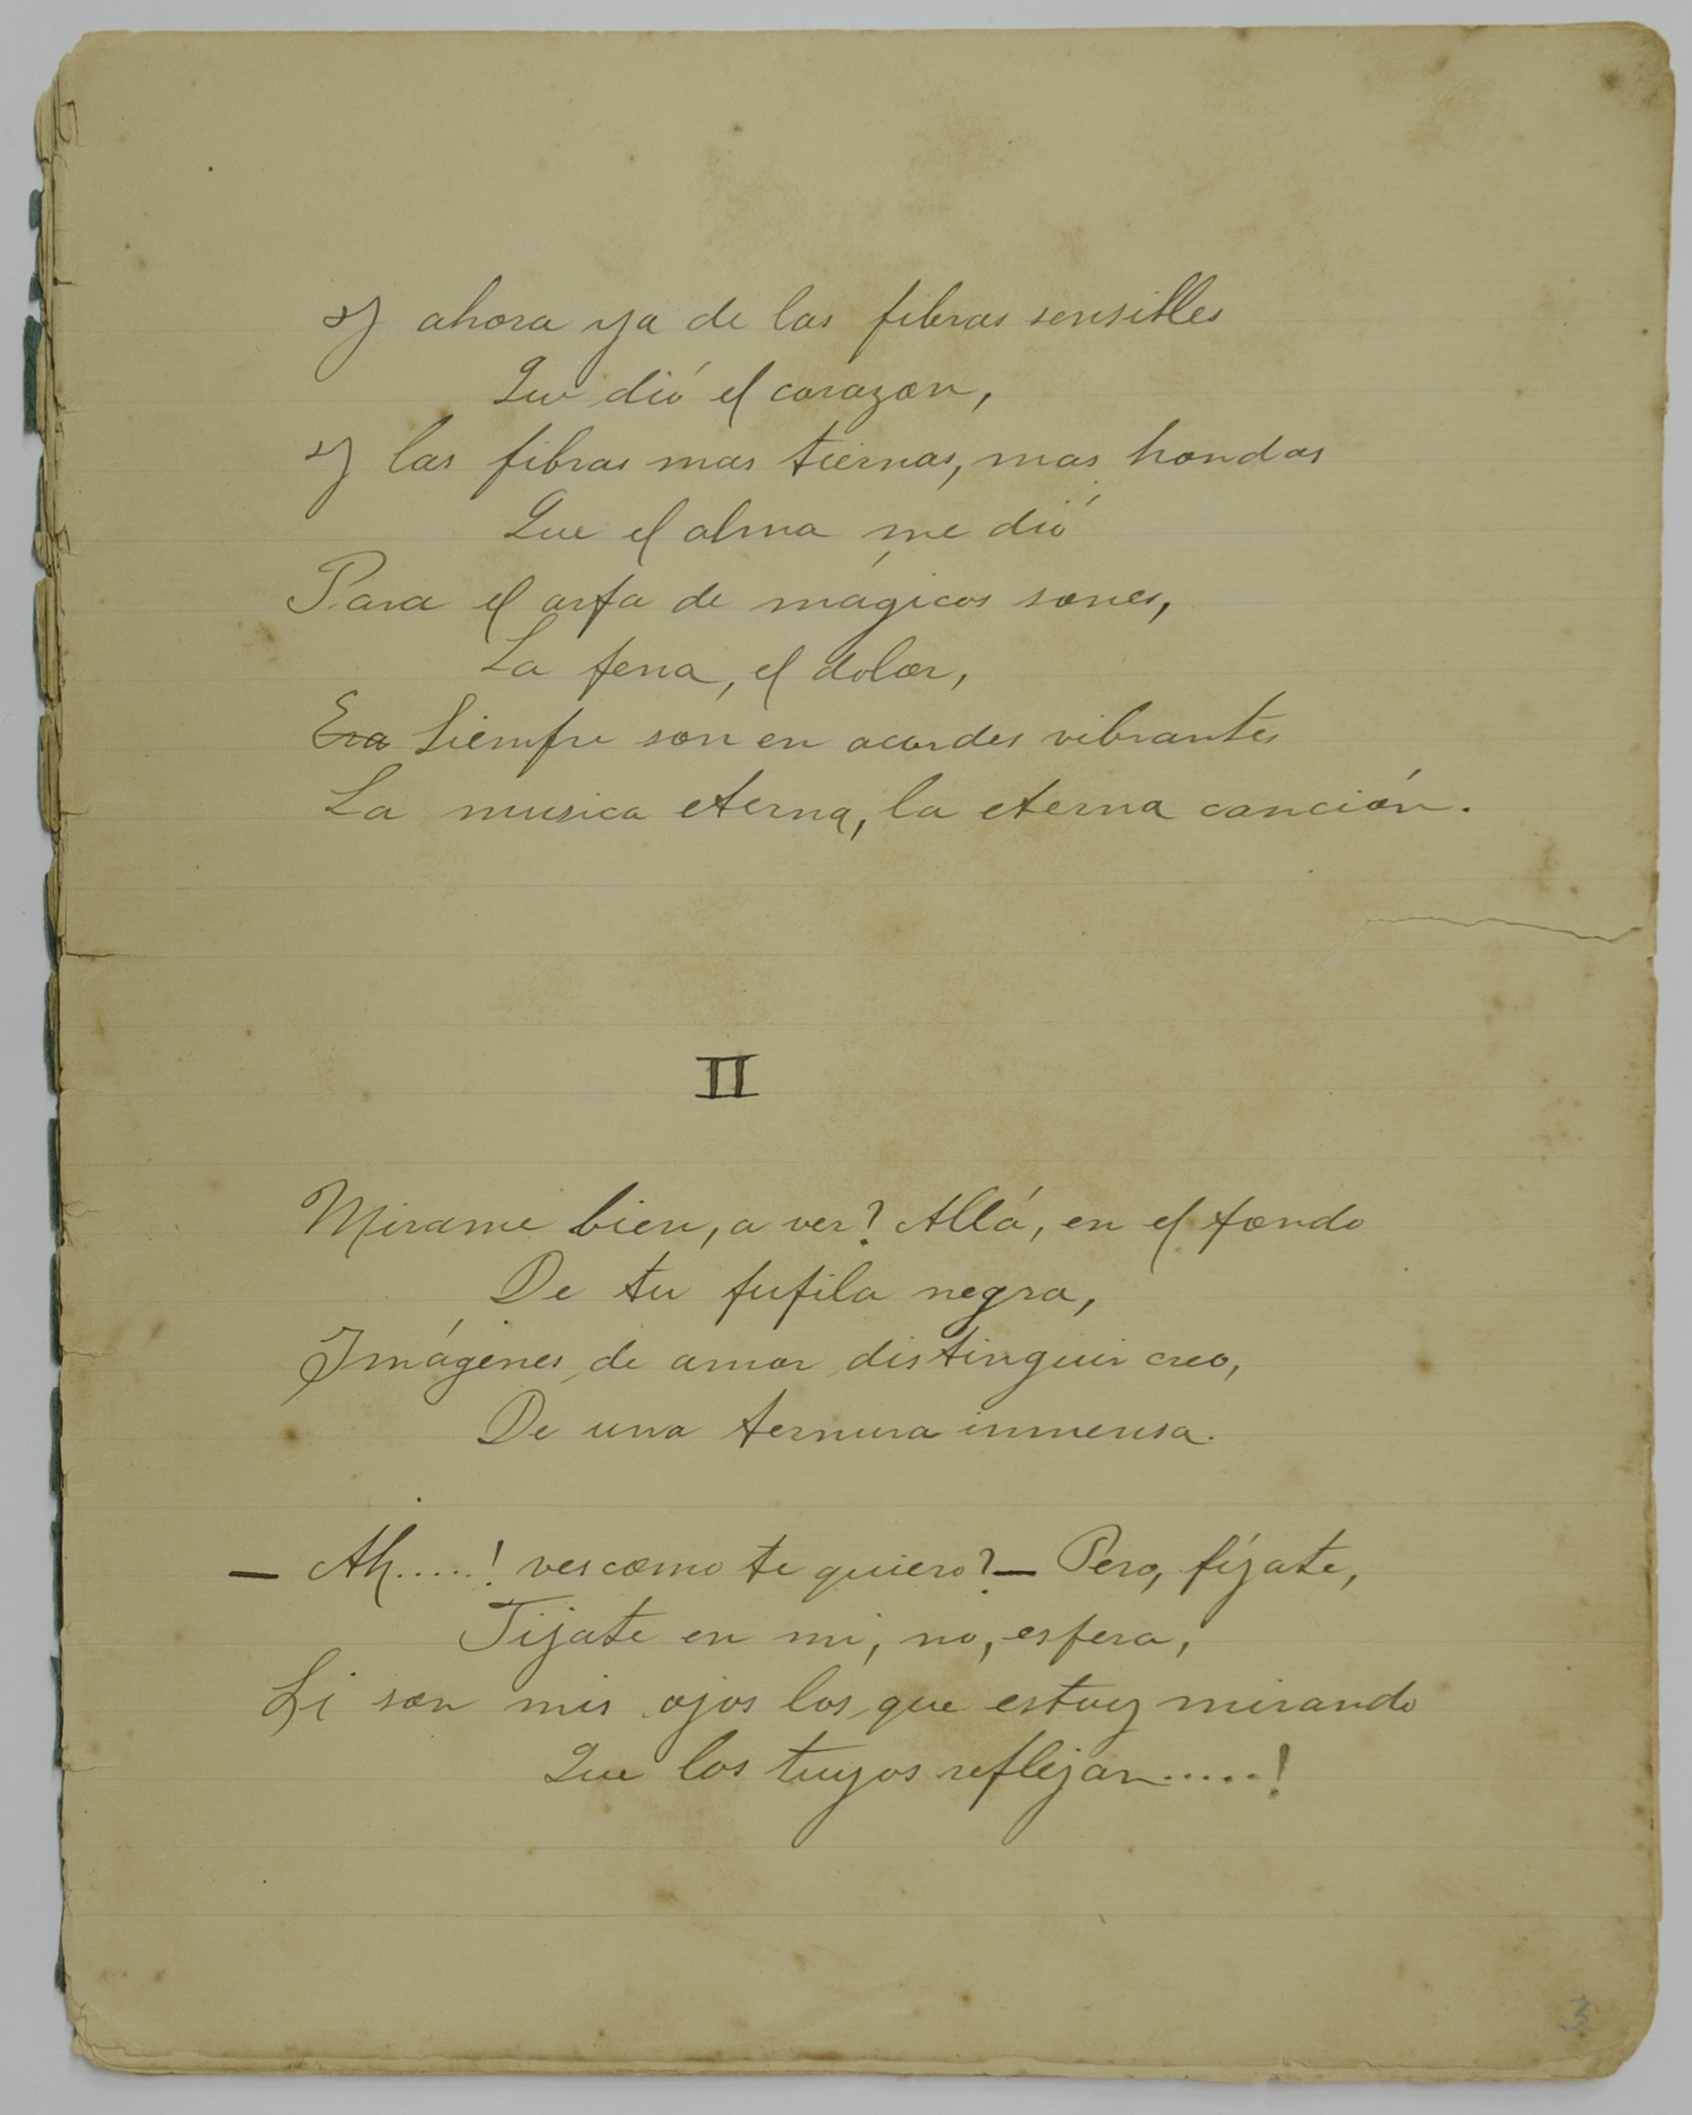 Y ahora ya de las fibras sensibles
Que dió el corazon,
Y las fibras mas tiernas, mas hondas
Que el alma me dió
Para el arpa de mágicos sones,
La pena, el dolor,
Era Siempre son en acordes vibrantes
La musica eterna, la eterna canción.
II
Mirame bien, a ver? Allá, en el fondo
De tu pupila negra,
Imágenes de amor distinguir creo,
De una ternura inmensa.
— Ah.....! ves como te quiero? — Pero, fíjate,
Fijate en mi, no, espera,
Si son mis ojos los que estoy mirando
Que los tuyos reflejan.....!
3